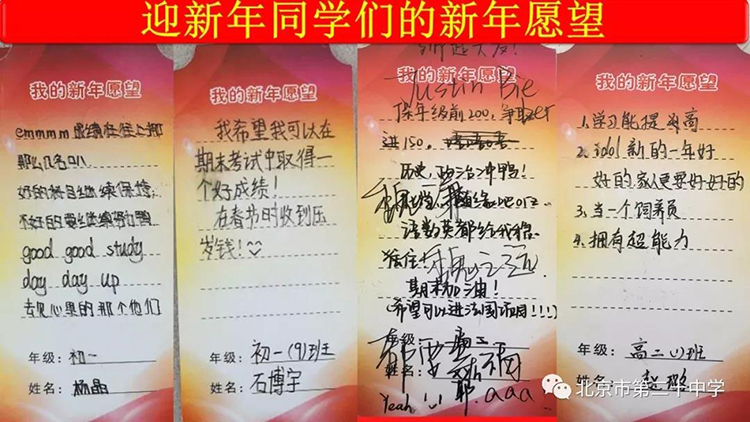 迎新年同学们的新年愿望
我的新年愿望
emmmm 成绩往往上挪
那么几名叭
好的科目继续保持
不好的要继续努力鸭
good good study
day day up
去见心里的那个他们
年级：初一
姓名：杨晶
我的新年愿望
我希望我可以在
期末考试中取得一
个好成绩！
在春节时收到压
岁钱！
年级：初一(9)班
姓名：石博宇
Justin Bie
我的新年愿望
保年级前200，争取
进150。
历史，政治冲鸭！
语数英都给我稳
期末加油！
(希望可以进法国 !!!)
年级：高二
姓名：
Yeah 耶. aaa
我的新年愿望
1、学习能提高
2、idol 新的一年好
好的 家人要好好的
3、当一个饲养员
4、拥有超能力
年级：高二(1)班
姓名：
北京市第二十中学